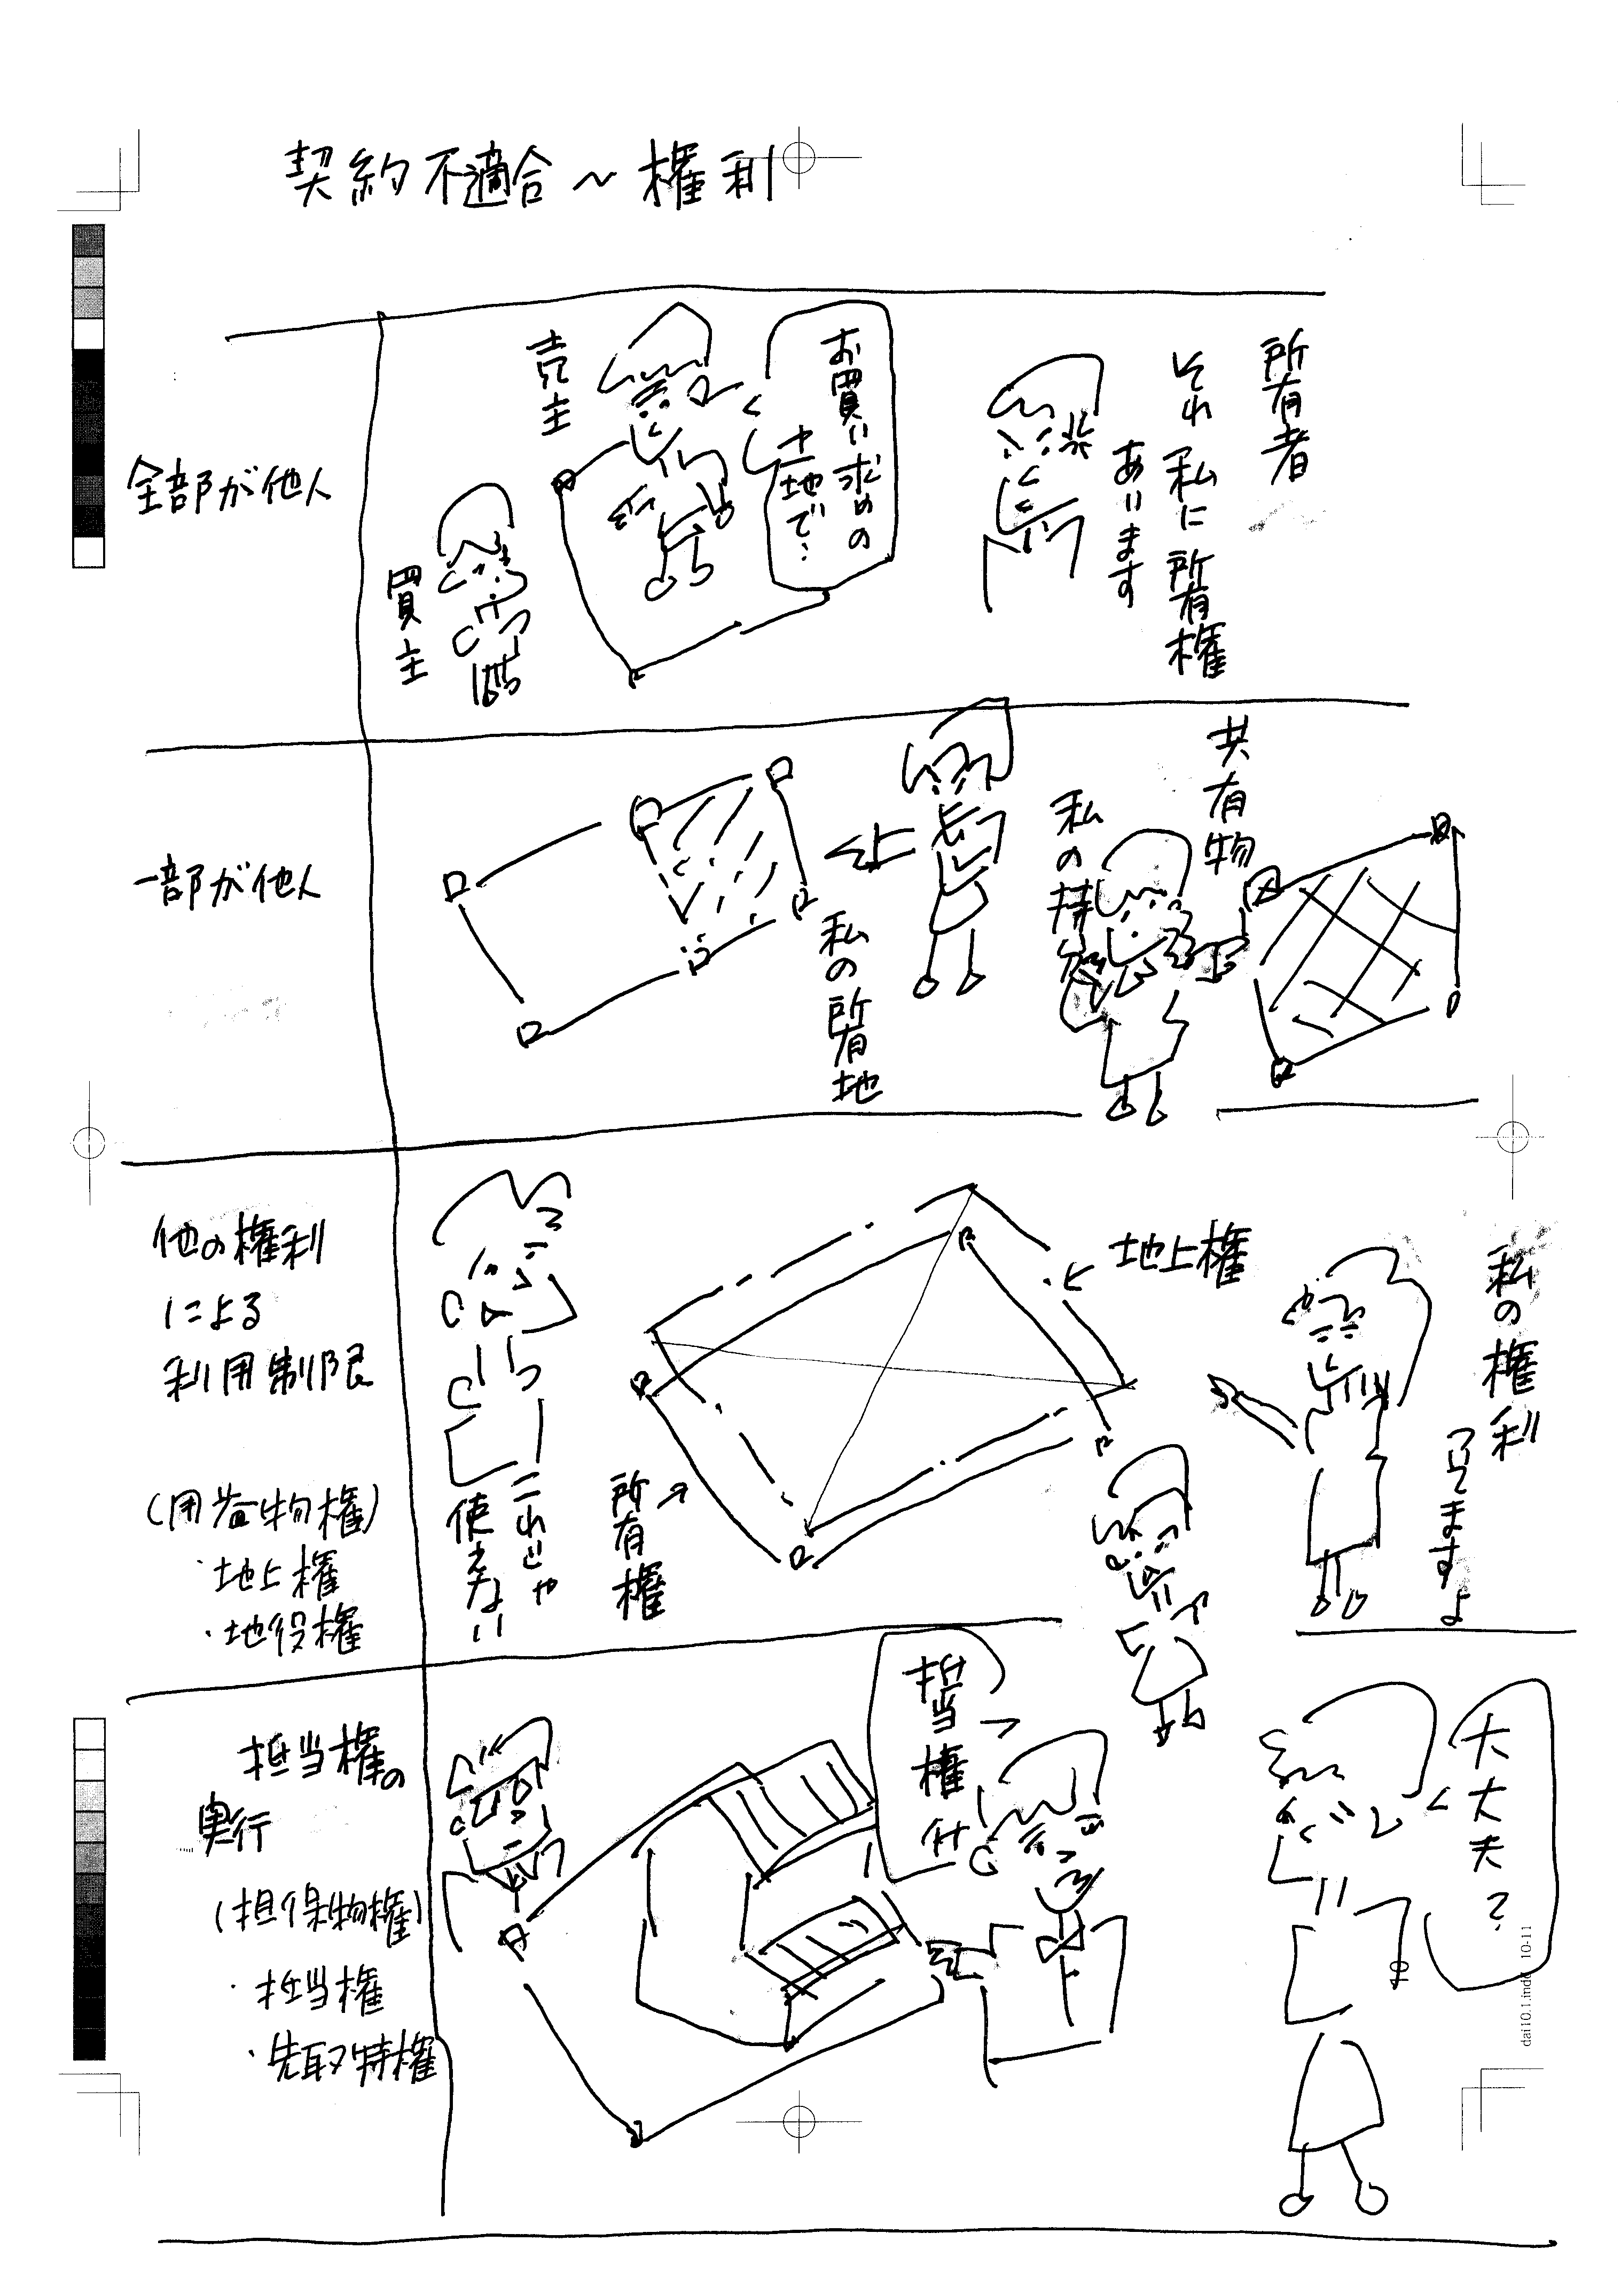 契約不適合～権利
全部が他人
買主
売主
お買い求めの
土地で…
所有者
それ私に所有権
あります
一部が他人
私の所有地
共有物
私の持分
他の権利
による
利用制限
(用益物権)
・地上権
・地役権
これじゃ
使えない
所有権
地上権
私の権利
ついてますよ
担当権の
実行
(担保物権)
・担当権
・先取特権
担当権付
大大夫?
dai10.1.indd 10-11